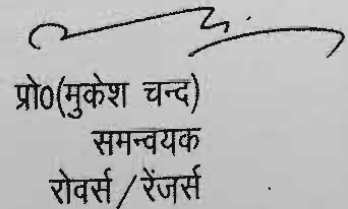 प्रो0(मुकेश चन्द)
समन्वयक
रोवर्स / रेंजर्स